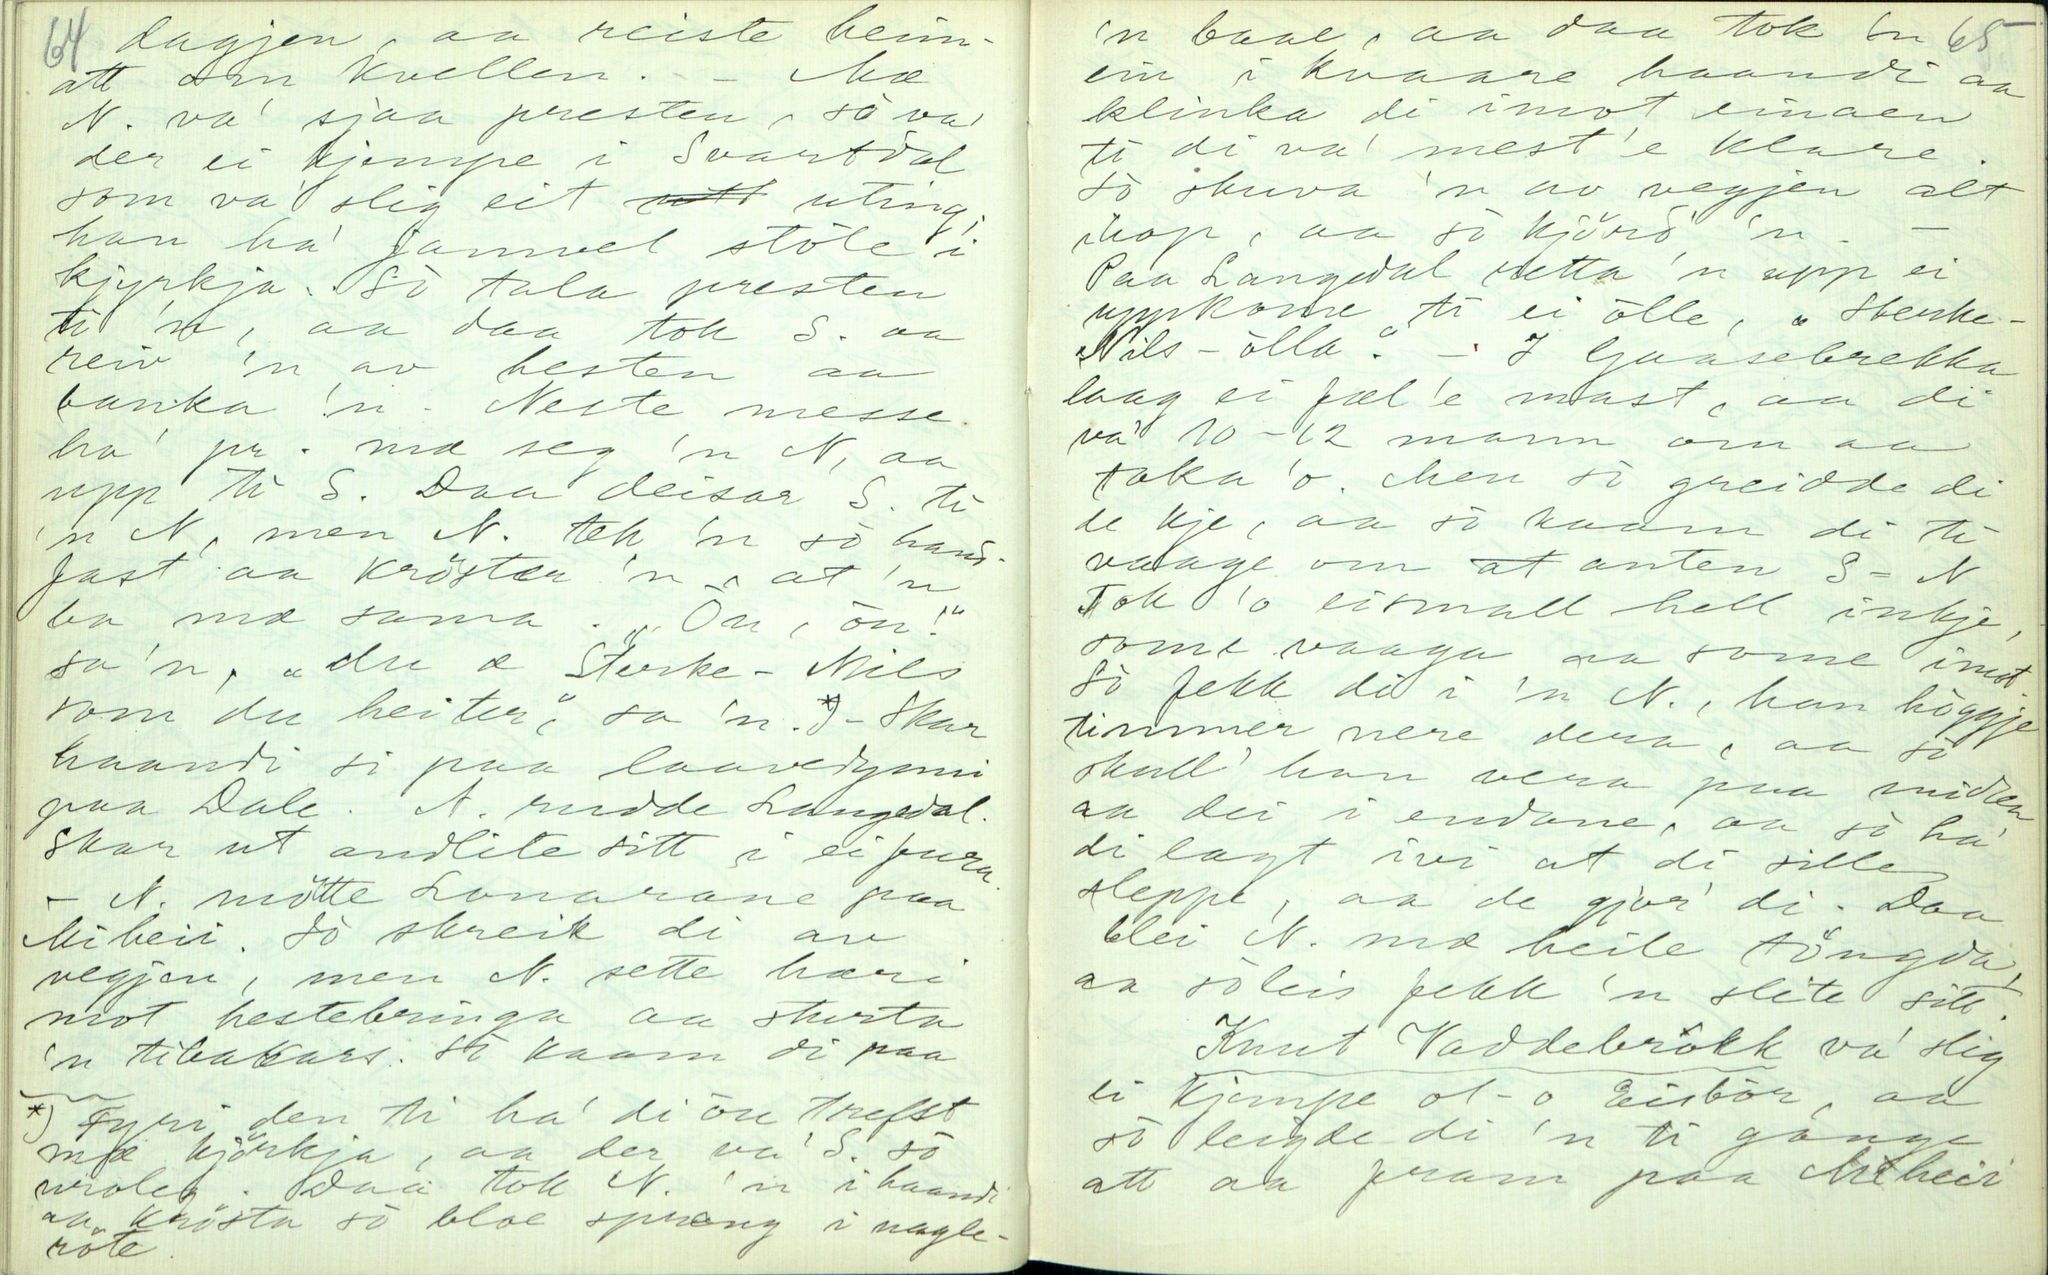 64
dagjen, aa reiste heim-
att om kvellen. - Mæ
N. va' sjaa presten, sò va'
der ei kjempe i Svartdal
som va' slig eit uting,
han ha' jamvel stòle i
kjyrkja. Sò tala presten
ti 'n, aa daa tok S. aa
reiv 'n av hesten aa
banka 'n. Neste messe
ha' pr. mæ seg 'n N, aa
upp ti S. Daa deisar S. ti
'n N, men N. tek 'n sò hand-
fast aa kröster 'n, at 'n
ba mæ sama. „Òn, òn!"
sa 'n, „du æ Sterke-Nils
som du heiter," sa 'n.*) - Skar
haandi si paa laavedynni
paa Dale. N. rudde Langedal.
Skar ut andlite sitt i ei fura.
- N. mötte Lonarane paa
Miheii. Sò skreik di av
vegjen, men N. sette hæri
mot hestebringa aa sturta
'n tibakars. Sò kaam di paa
*) Fyri den ti ha' di òn trefst
mæ kjörkja, aa der va' S. sò
uroleg. Daa tok N. 'n i haandi
aa krösta sò bloe sprang i nagle-
röte.
65
'n baae, aa daa tok 'n
ein i kvaare haandi aa
klinka di imot einaen
ti di va' mest'e klare.
Sò skuva 'n av vegjen alt
ihop, aa sò kjörd' 'n. -
Paa Langedal setta 'n upp ei
uppkome ti ei òlle, „Sterke-
Nils-òlla". - I Gaasebrekka
laag ei fæl'e mast, aa di
va' 10-12 mann om aa
taka 'o. Men sò greidde di
de kje, aa sò kaam di ti
vaage om at anten S-N
tok 'o eismall hell inkje,
some vaaga aa some imot
Sò fekk di i 'n N., han höggje
timmer nere dera, aa sò
skull' han vera paa midten
aa dei i endane, aa sò ha'
di lagt ivi at di sille
sleppe, aa de gjor' di. Daa
blei N. mæ heile töngda,
aa sòleis fekk 'n slite sitt.
Knut Vaddebròkk va' slig
ei kjempe ot-o Eisbòr, aa
sò leigde di 'n ti gange
att aa fram paa Miheii